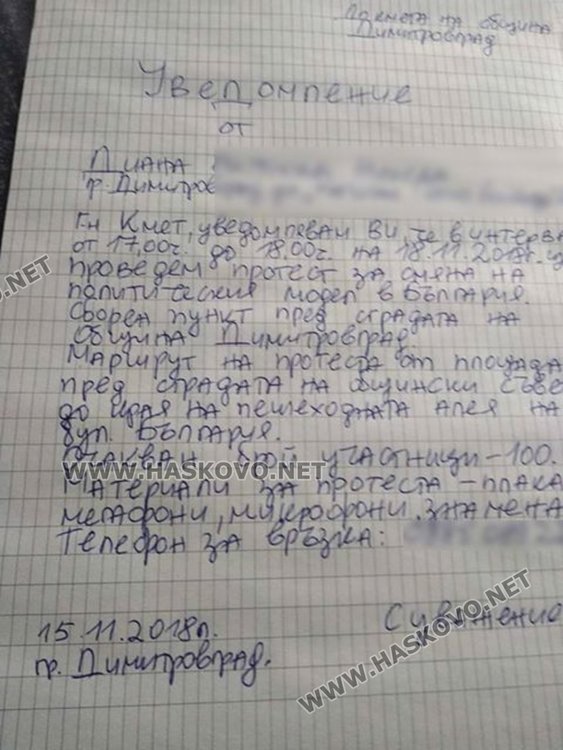 До кмета на община
Димитровград
Уведомление
от
Диана
гр. Димитров
Г-н Кмет, уведомявам Ви, че в интерва
от 17,00ч. до 18.00ч. на 18.11.2018г. ще
проведем протест за смяна на
политическия модел в България.
Сборен пункт пред сградата на
Община Димитровград.
Маршрут на протеста от площада
пред сградата на общински съве
до края на пешеходната алея на
бул. България.
Очакван брой участници-100.
Материали за протеста - плака
мегафони, микрофони, знамена
Телефон за връзка:
15.11.2018г.
гр. Димитровград.
С уважение
WWW.HASKOVO.NET
WWW.HASKOVO.NET
WWW.HASKOVO.NET